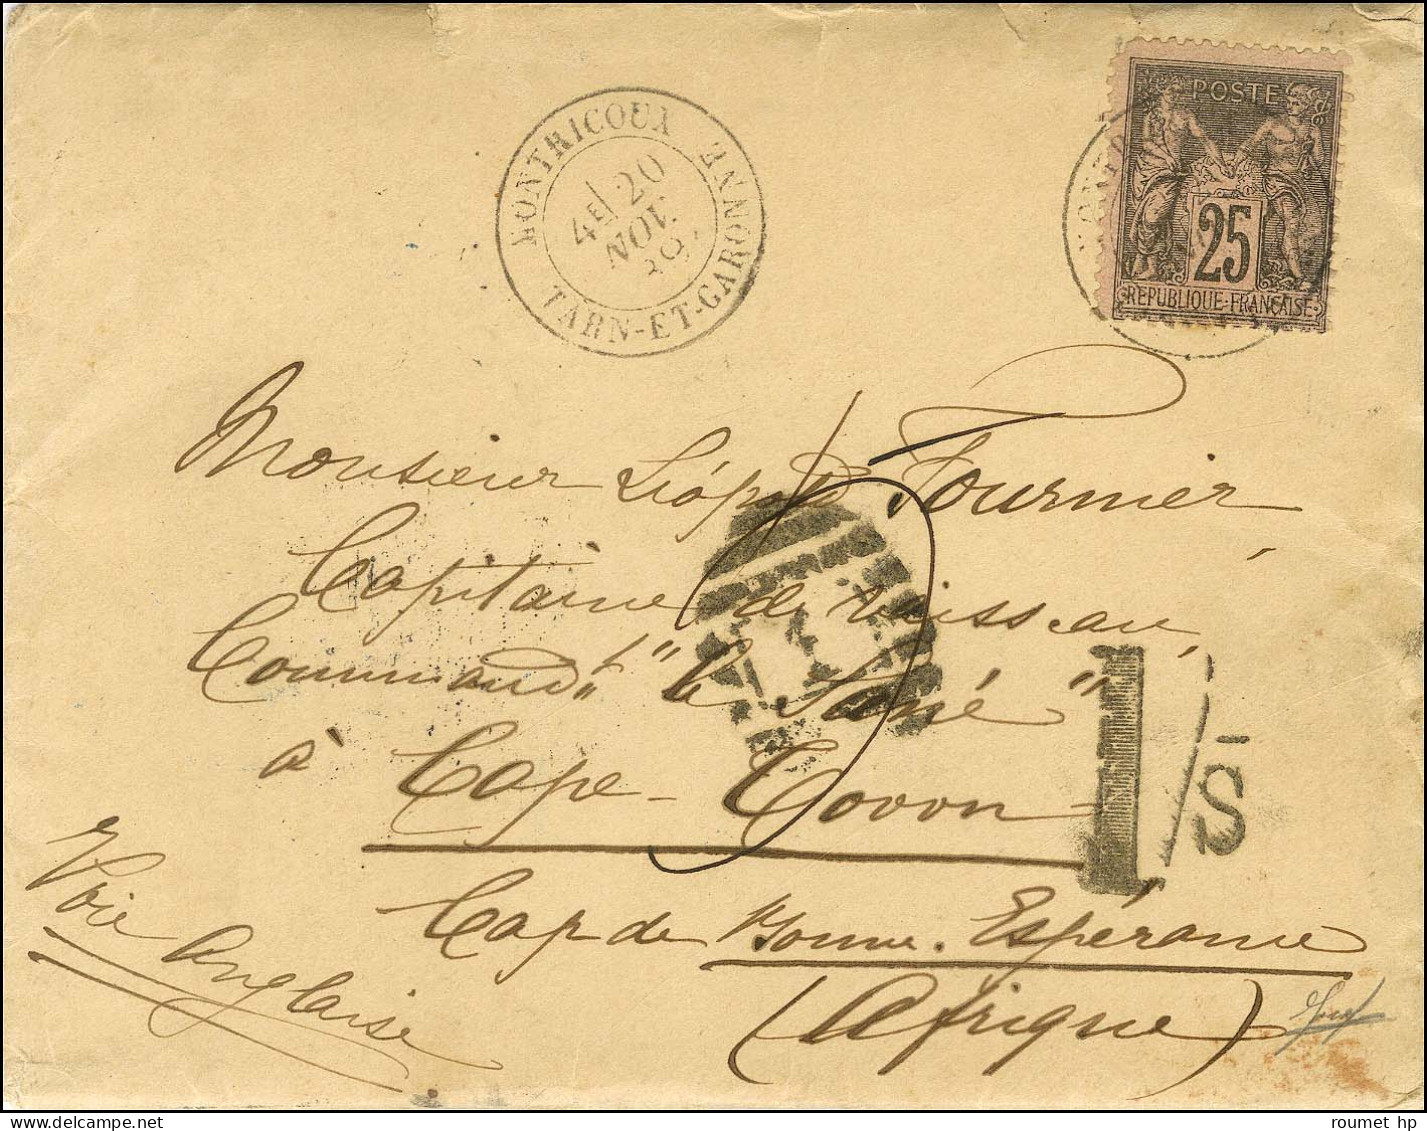 MONTRICOUX
TARN-ET-GARONNE
4E 20
NOV.
POSTE
25
REPUBLIQUE-FRANÇAISE
Monsieur Léopold Fournier
Capitaine de vaisseau
Commandt "le Sané"
à Cape-Town
Cap de Bonne-Espérance
(Afrique)
Voie Anglaise
1/S
delcampe.net
roumet hp